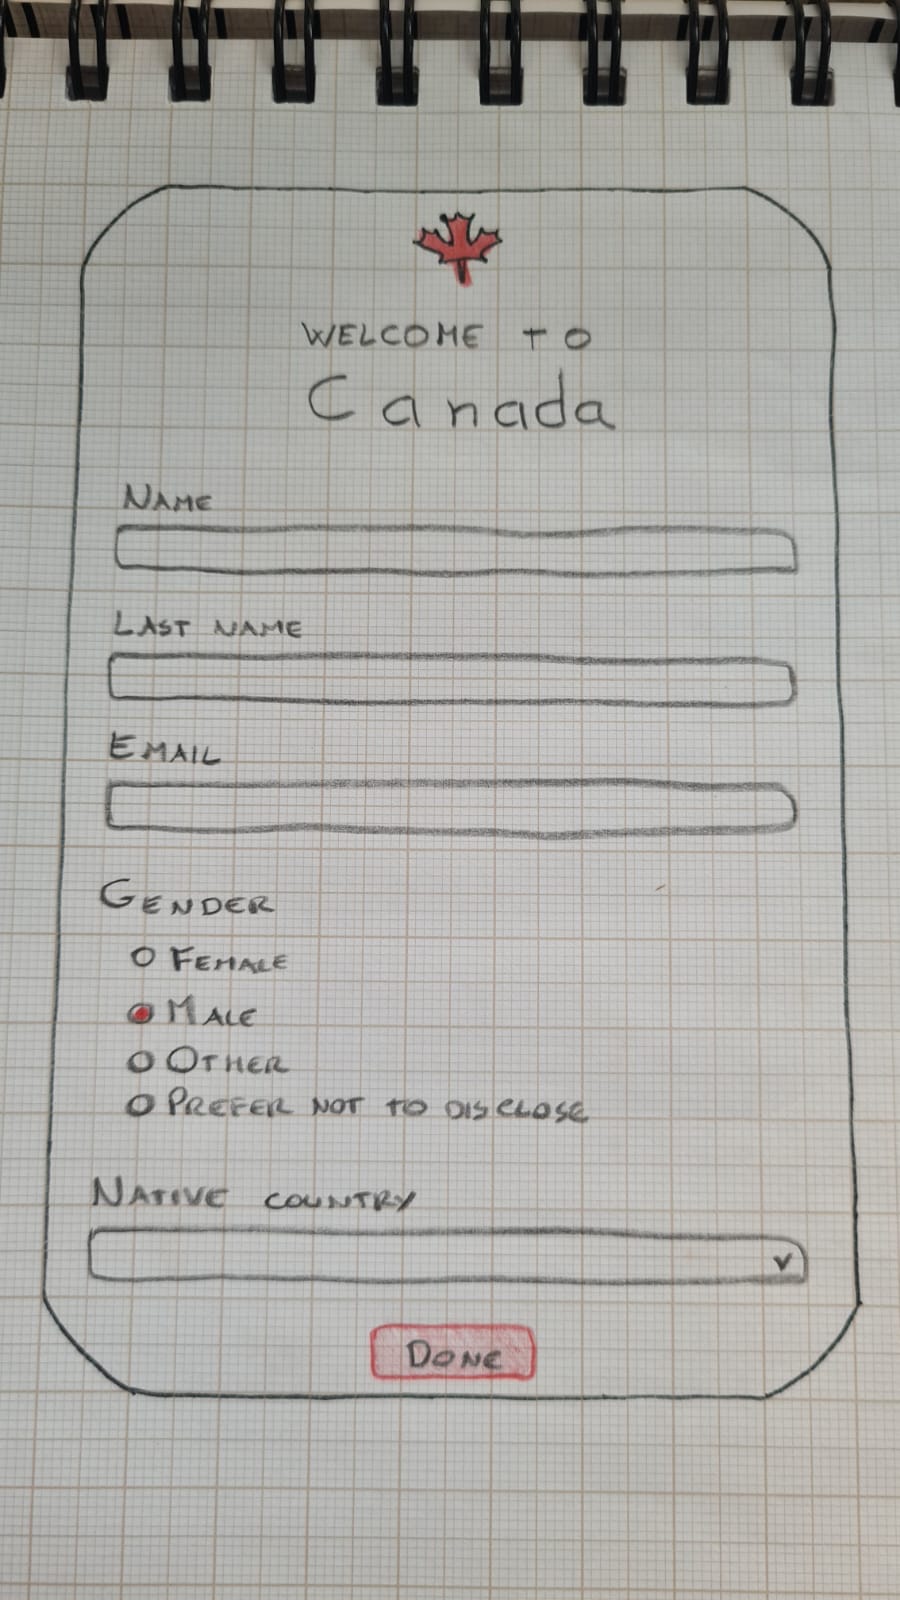 WELCOME TO
Canada
NAME
LAST NAME
EMAIL
GENDER
FEMALE
MALE
OTHER
PREFER NOT TO DISCLOSE
NATIVE COUNTRY
DONE